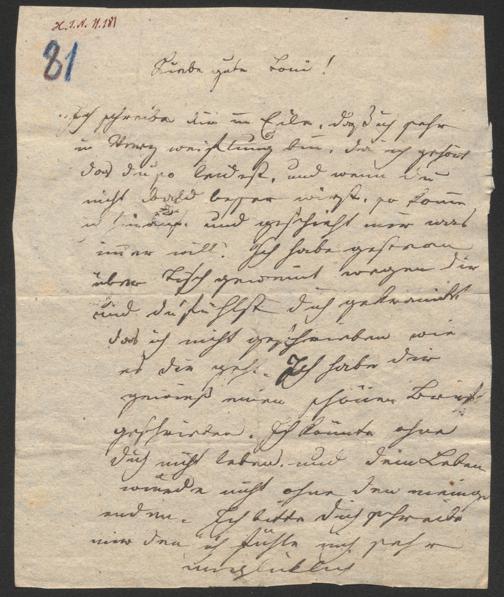 H.I.N. 11.181
81
Liebe gute Toni!
Ich schreibe dir in Eile, daß ich sehr
in Verzweiflung bin, da ich gehört
das du so leidest, und wenn du
nicht bald besser wirst, so komme
ich hinauf und geschieht mir was
immer will. Ich habe gestern
über Tisch geweint wegen dir
und du fühlst dich gekränkt
das ich nicht geschrieben wie
es dir geht. Ich habe dir
gewieß einen schönen Brief
geschrieben. Ich könnte ohne
dich nicht leben und dein Leben
würde nicht ohne den meinige
enden. Ich bitte dich schreibe
mir den ich fühle mich sehr
unglücklich